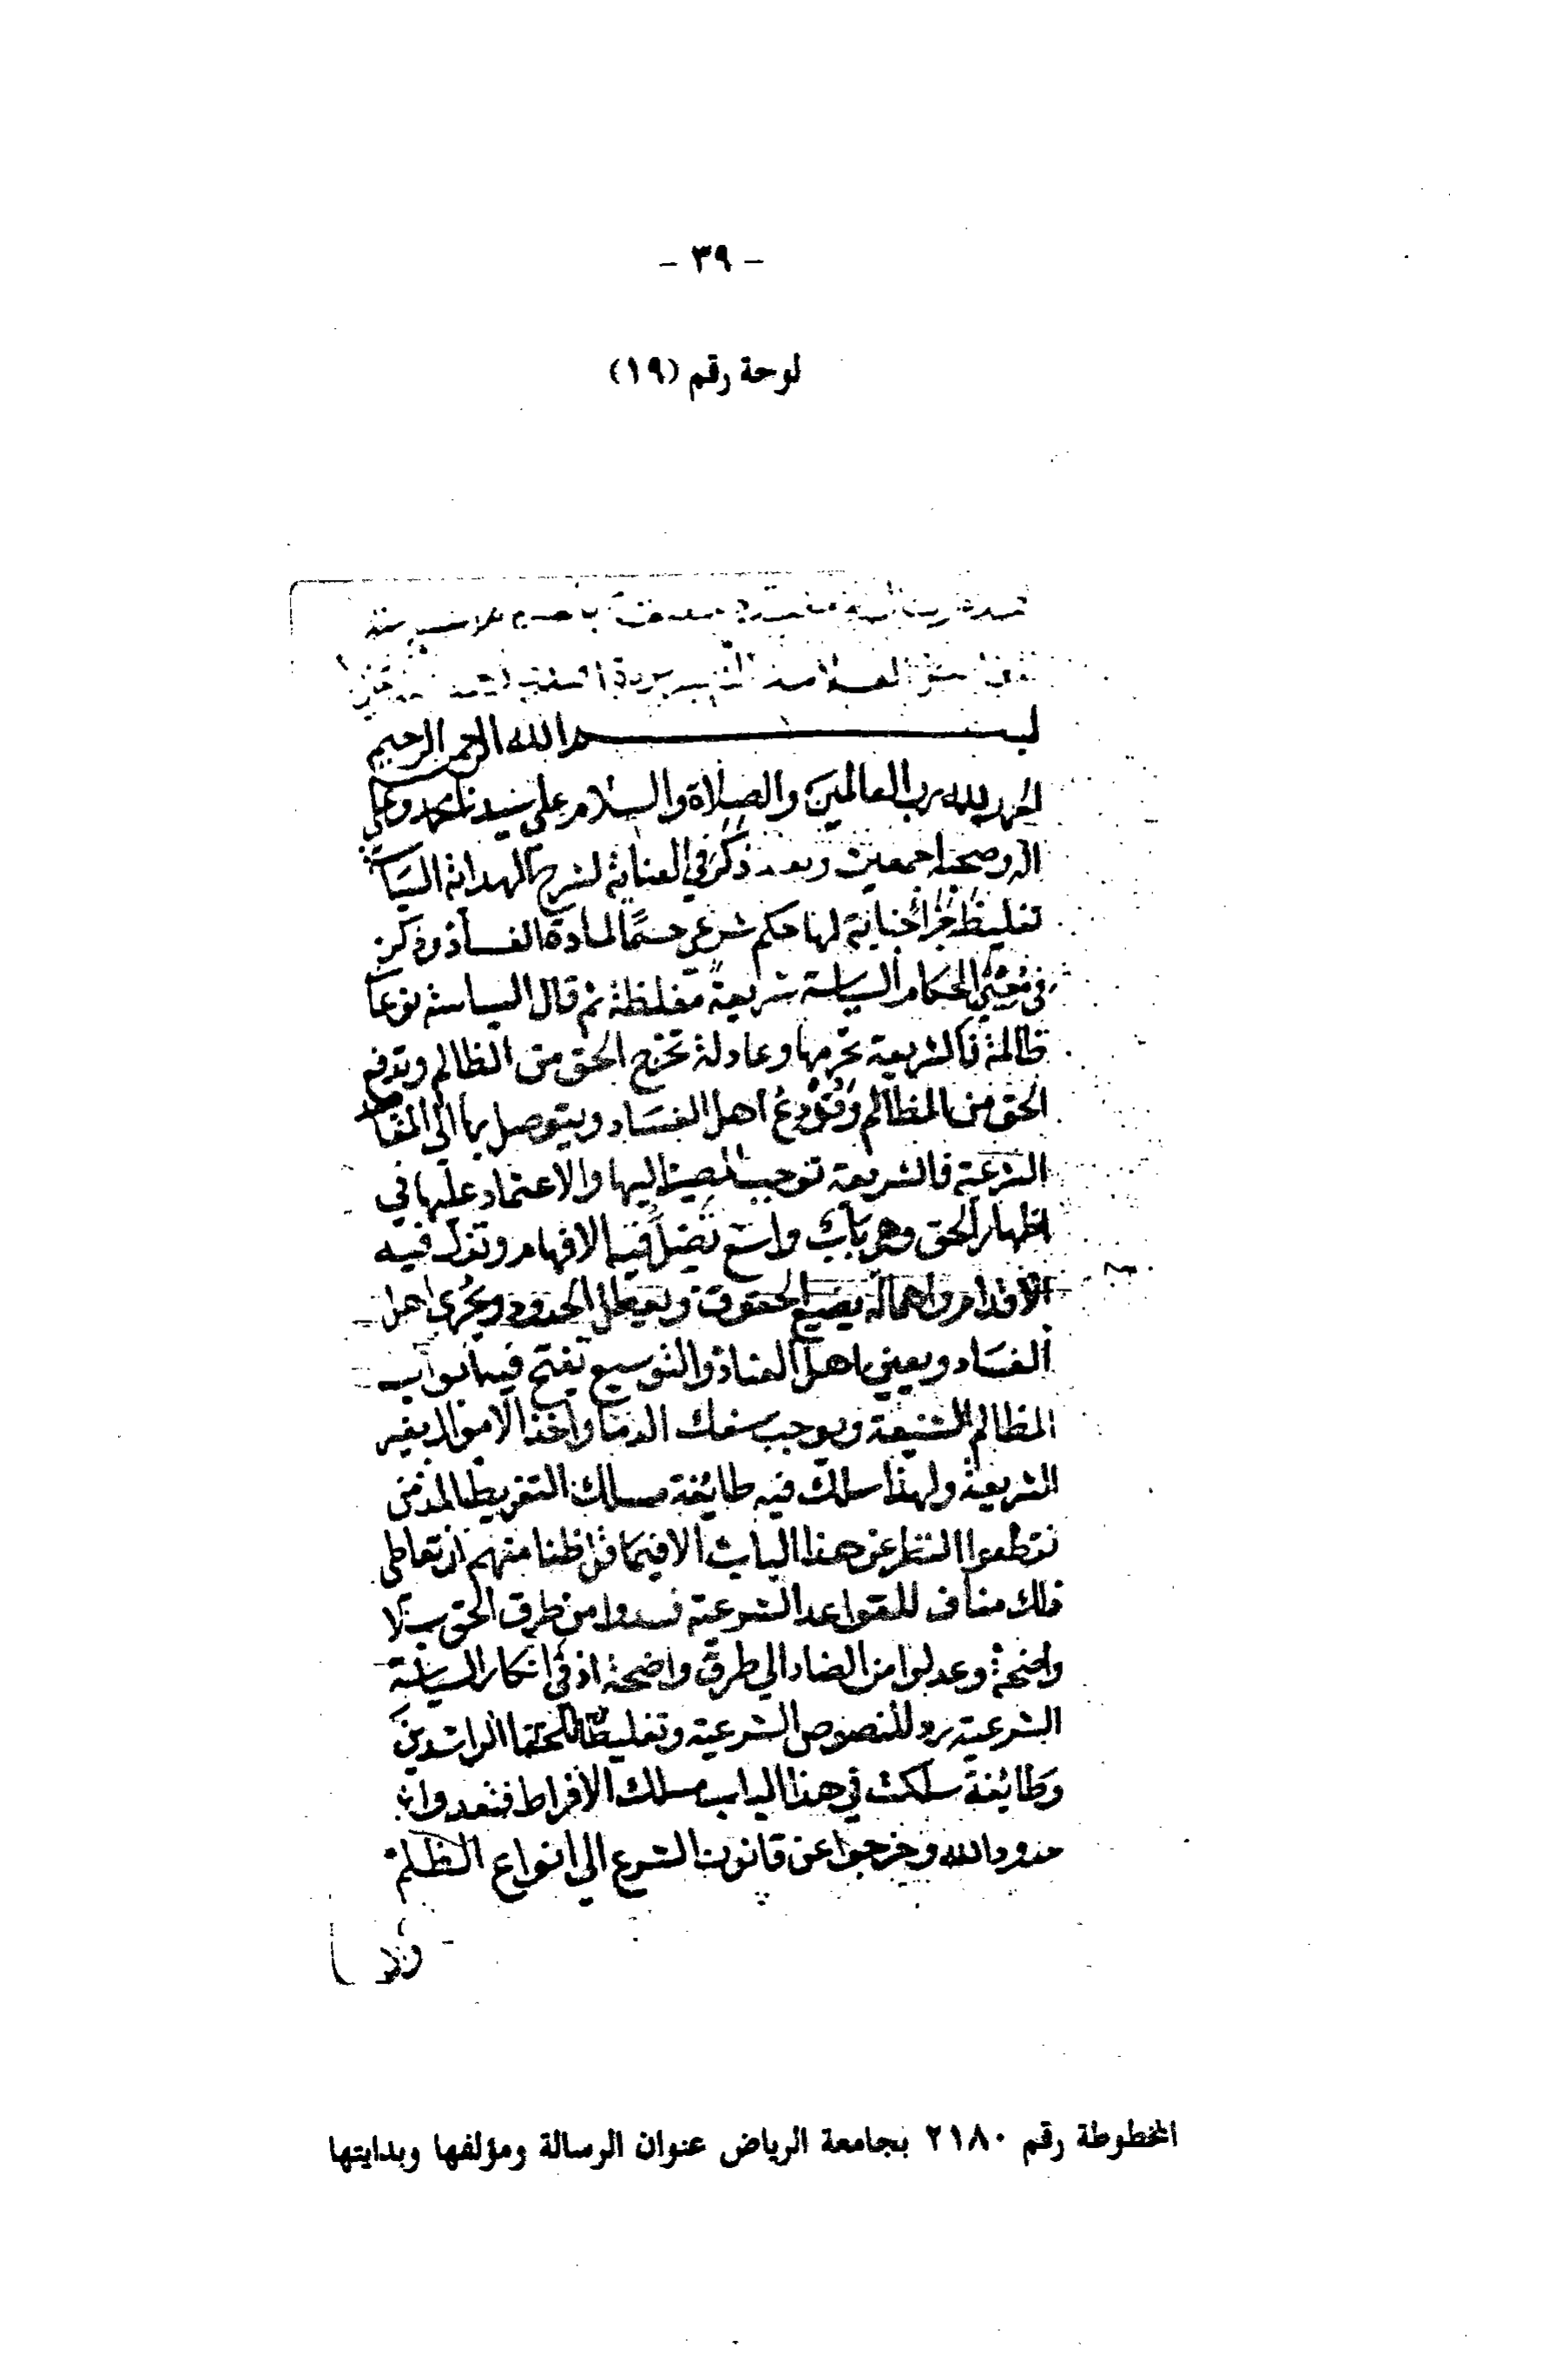 - ٣٩ -
لوحة رقم (١٩)
هذه رسالة
العلامة
بسم الله الرحمن الرحيم
الحمد لله رب العالمين والصلاة والسلام على سيدنا محمد وعلى
اله وصحبه اجمعين وبعد ذكر في العناية لشرح الهداية السياسة
تغليظ جزا جناية لها حكم شرعي حسمًا لمادة الفساد وذكر
في معين الحكام السياسة شريعة مغلظة ثم قال السياسة نوعان
ظالمة فالشريعة تحرمها وعادلة تخرج الحق من الظالم وتدفع
الحق من المظالم وتردع اهل الفساد ويتوصل بها الي المقاصد
الشرعية فالشريعة توجب المصير اليها والاعتماد عليها في
اظهار الحق وهي باب واسع تضل فيه الافهام وتزل فيه
الاقدام واهماله يضيع الحقوق ويعطل الحدود ويجري اهل
الفساد ويعين اهل العناد والتوسع تفتح فيه ابواب
المظالم الشنيعة ويوجب سفك الدما واخذ الاموال بغير
الشريعة ولهذا سلك فيه طايفة مسلك التفريط المذموم
فقطعوا النظر عن هذا الباب الا فيما قل ظنا منهم ان تعاطي
ذلك مناف للقواعد الشرعية فسدوا من طرق الحق سبلا
واضحة وعدلوا من العناد الي طرق واضحة اذ في انكار السياسة
الشرعية رد للنصوص الشرعية وتغليطا للخلفا الراشدين
وطايفة سلكت في هذا الباب مسلك الافراط فتعدوا
حدود الله وخرجوا عن قانون الشرع الي انواع الظلم
المخطوطة رقم ٢١٨٠ بجامعة الرياض عنوان الرسالة ومؤلفها وبدايتها